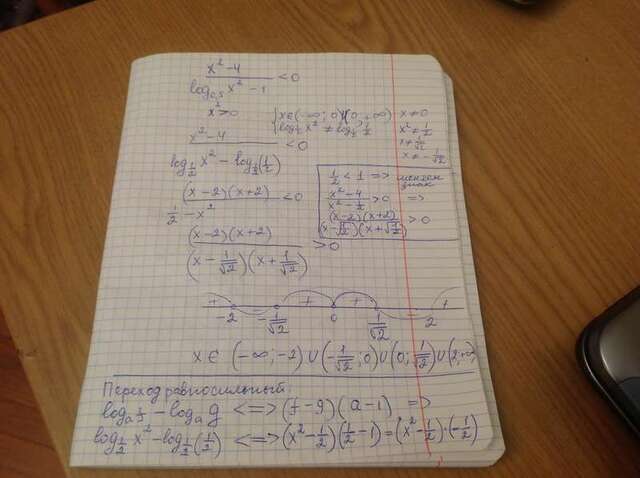 x² - 4 / log₀,₅ x² - 1 < 0
x² > 0
{ x ∈ (-∞; 0) (0; +∞) x ≠ 0
log½ x² ≠ log½ ½ x² ≠ ½
x ≠ 1/√2
x ≠ -1/√2
x² - 4 / log½ x² - log½(½) < 0
(x-2)(x+2) / ½ - x² < 0
(x-2)(x+2) / (x - 1/√2)(x + 1/√2) > 0
½ < 1 => меняем
знак
x² - 4 / x² - ½ > 0 =>
(x-2)(x+2) / (x-√½)(x+√½) > 0
+ - + + - +
-2 -1/√2 0 1/√2 2
x ∈ (-∞; -2) ∪ (-1/√2; 0) ∪ (0; 1/√2) ∪ (2; +∞)
Переход равносильный
logₐ f - logₐ g <=> (f - g)(a - 1) =>
log½ x² - log½(½) <=> (x² - ½)(½ - 1) = (x² - ½)·(-½)